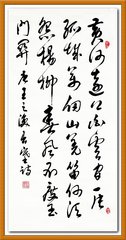 黄河遠上白雲间一片
孤城萬仞山羌笛何須
怨楊柳春風不度玉
門關 唐王之渙詩